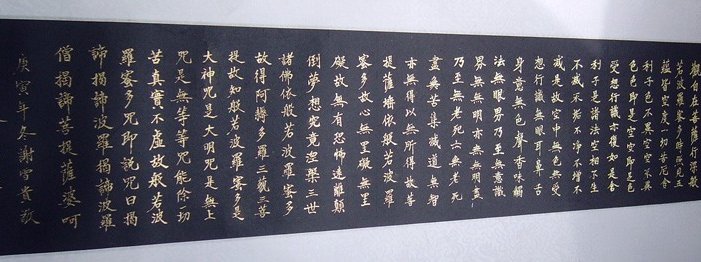 觀自在菩薩行深般
若波羅蜜多時照見五
蘊皆空度一切苦厄舍
利子色不異空空不異
色色即是空空即是色
受想行識亦復如是舍
利子是諸法空相不生
不滅不垢不淨不增不
減是故空中無色無受
想行識無眼耳鼻舌
身意無色聲香味觸
法無眼界乃至無意識
界無無明亦無無明盡
乃至無老死亦無老死
盡無苦集滅道無智
亦無得以無所得故菩
提薩埵依般若波羅
蜜多故心無罣礙無罣
礙故無有恐怖遠離顛
倒夢想究竟涅槃三世
諸佛依般若波羅蜜多
故得阿耨多羅三藐三菩
提故知般若波羅蜜多是
大神咒是大明咒是無上
咒是無等等咒能除一切
苦真實不虛故般若波
羅蜜多咒即說咒曰揭
諦揭諦波羅揭諦波羅
僧揭諦菩提薩婆呵
庚寅年冬謝雪貴敬